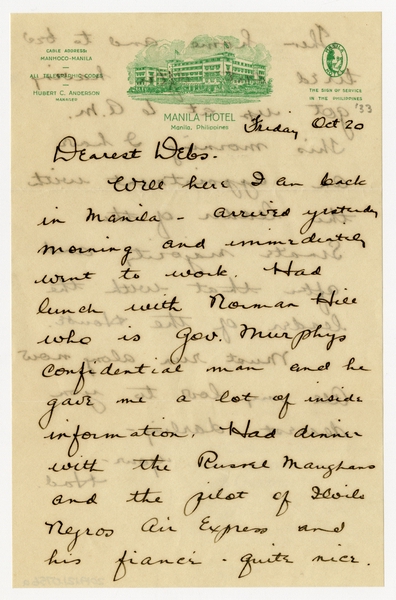 CABLE ADDRESS:
MANHOCO-MANILA
ALL TELEGRAPHIC CODES
HUBERT C. ANDERSON
MANAGER
MANILA HOTEL
Manila, Philippines
THE SIGN OF SERVICE
IN THE PHILIPPINES
Friday Oct 20
'33
Dearest Debs.
Well here I am back
in Manila - arrived yesterday
morning and immediately
went to work. Had
lunch with Norman Hill
who is Gov. Murphys
Confidential man and he
gave me a lot of inside
information. Had dinner
with the Russel Maughans
and the pilot of Iloilo
Negros Air Express and
his fiancé - quite nice.